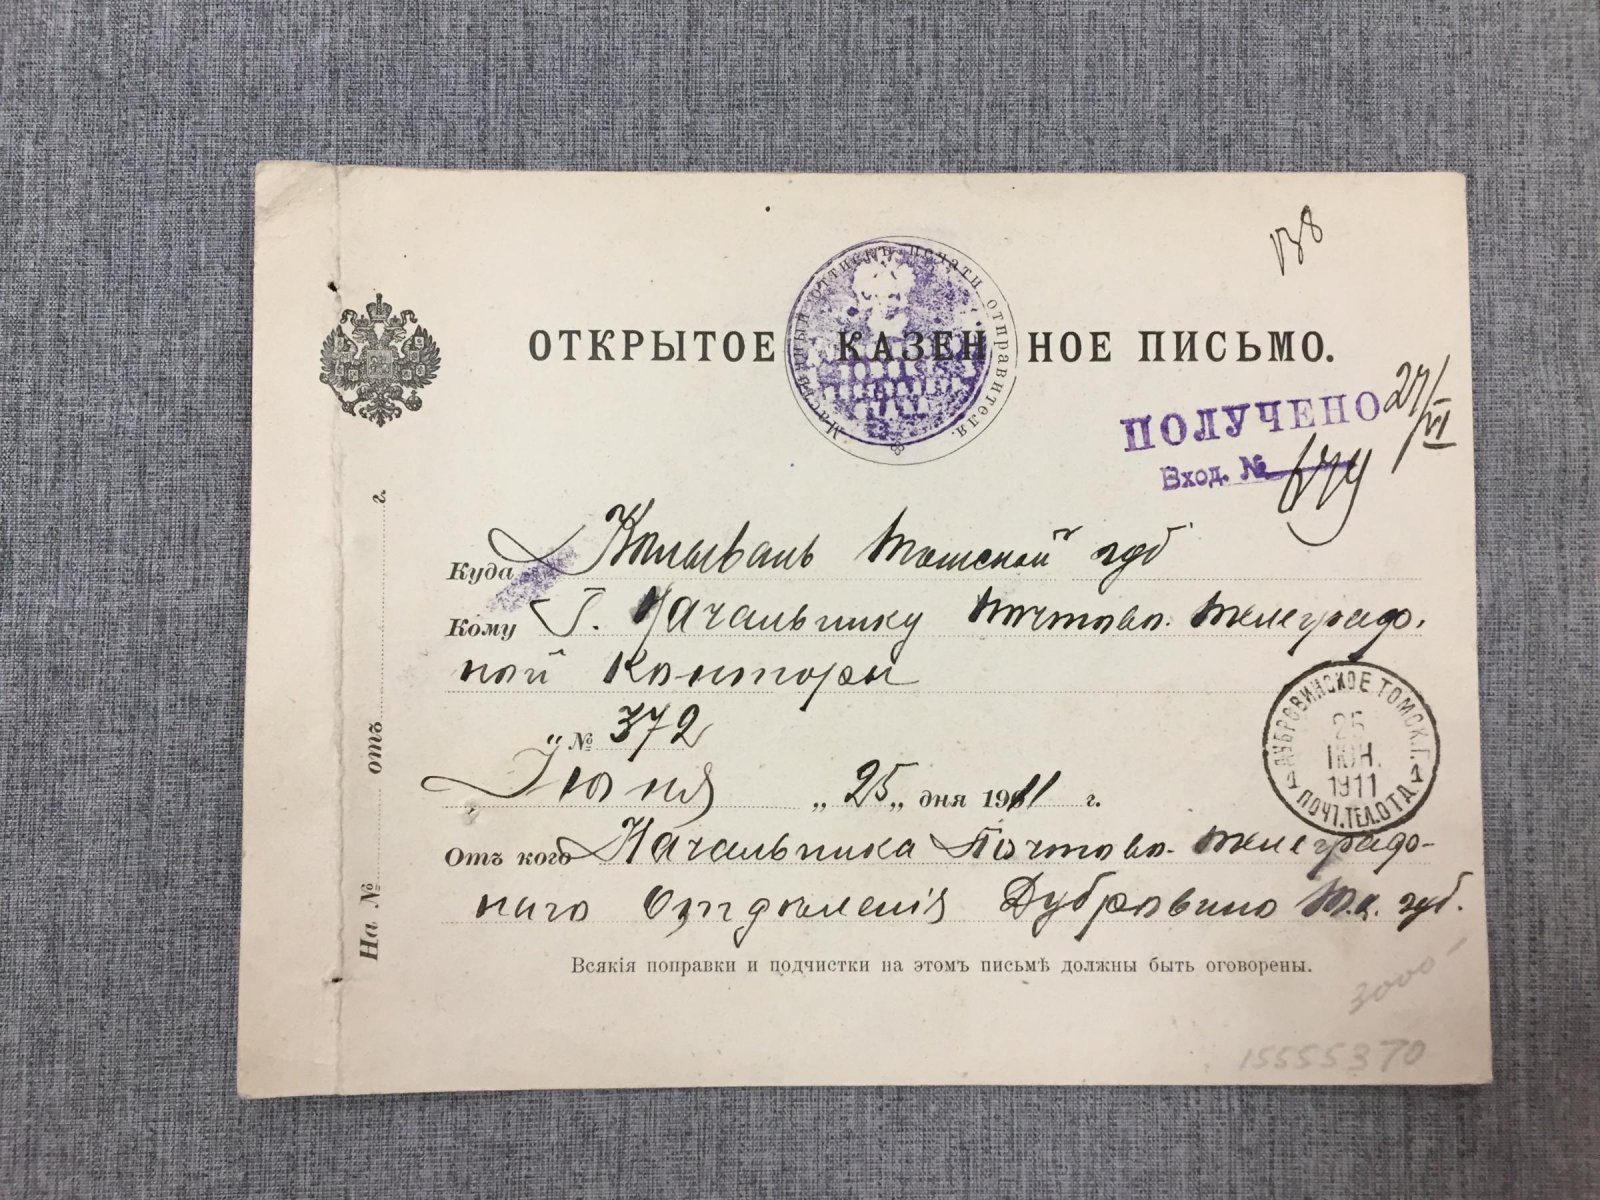 138
ОТКРЫТОЕ КАЗЕННОЕ ПИСЬМО.
Мастичный оттискъ печати отправителя.
ПОЛУЧЕНО 27/VI
Вход. №
Куда Колывань Томской губ
Кому Г. Начальнику Почтово-Телеграф-
ной Конторы
„ № 372
Іюня „ 25 „ дня 1911 г.
Отъ кого Начальника Почтово-Телеграф-
наго Отдѣленія Дубровино Т.к. губ.
Всякія поправки и подчистки на этомъ письмѣ должны быть оговорены.
ДУБРОВИНСКОЕ ТОМСК.Г.
25
ІЮН.
1911
ПОЧТ.ТЕЛ.ОТД
На № отъ г.
3000
15555370